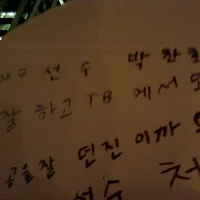 야구 선수 박찬호
잘 하고 TB 에서 모
공을 잘 던진 이까 요
선수 처